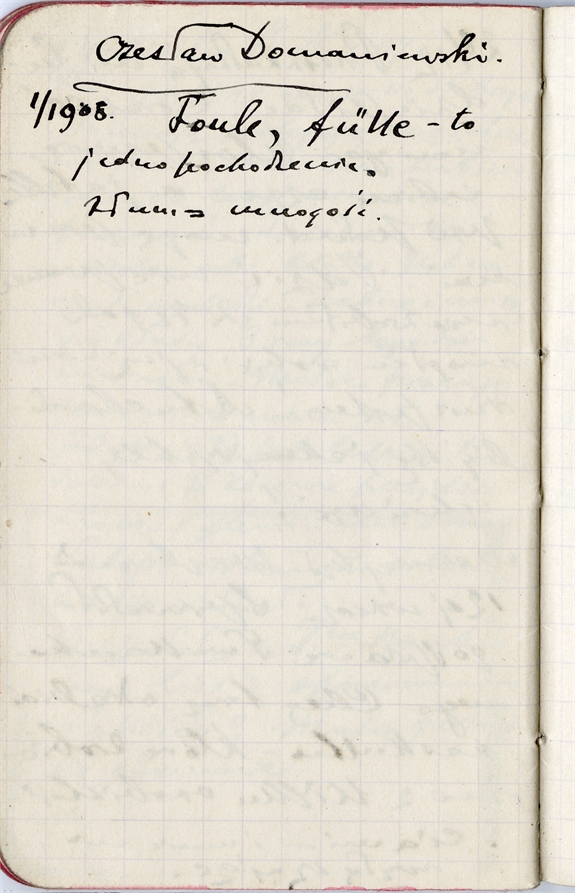 Czesław Domaniewski.
1/1908. Foule, fülle - to
jedno pochodzenie.
tłum = mnogość.